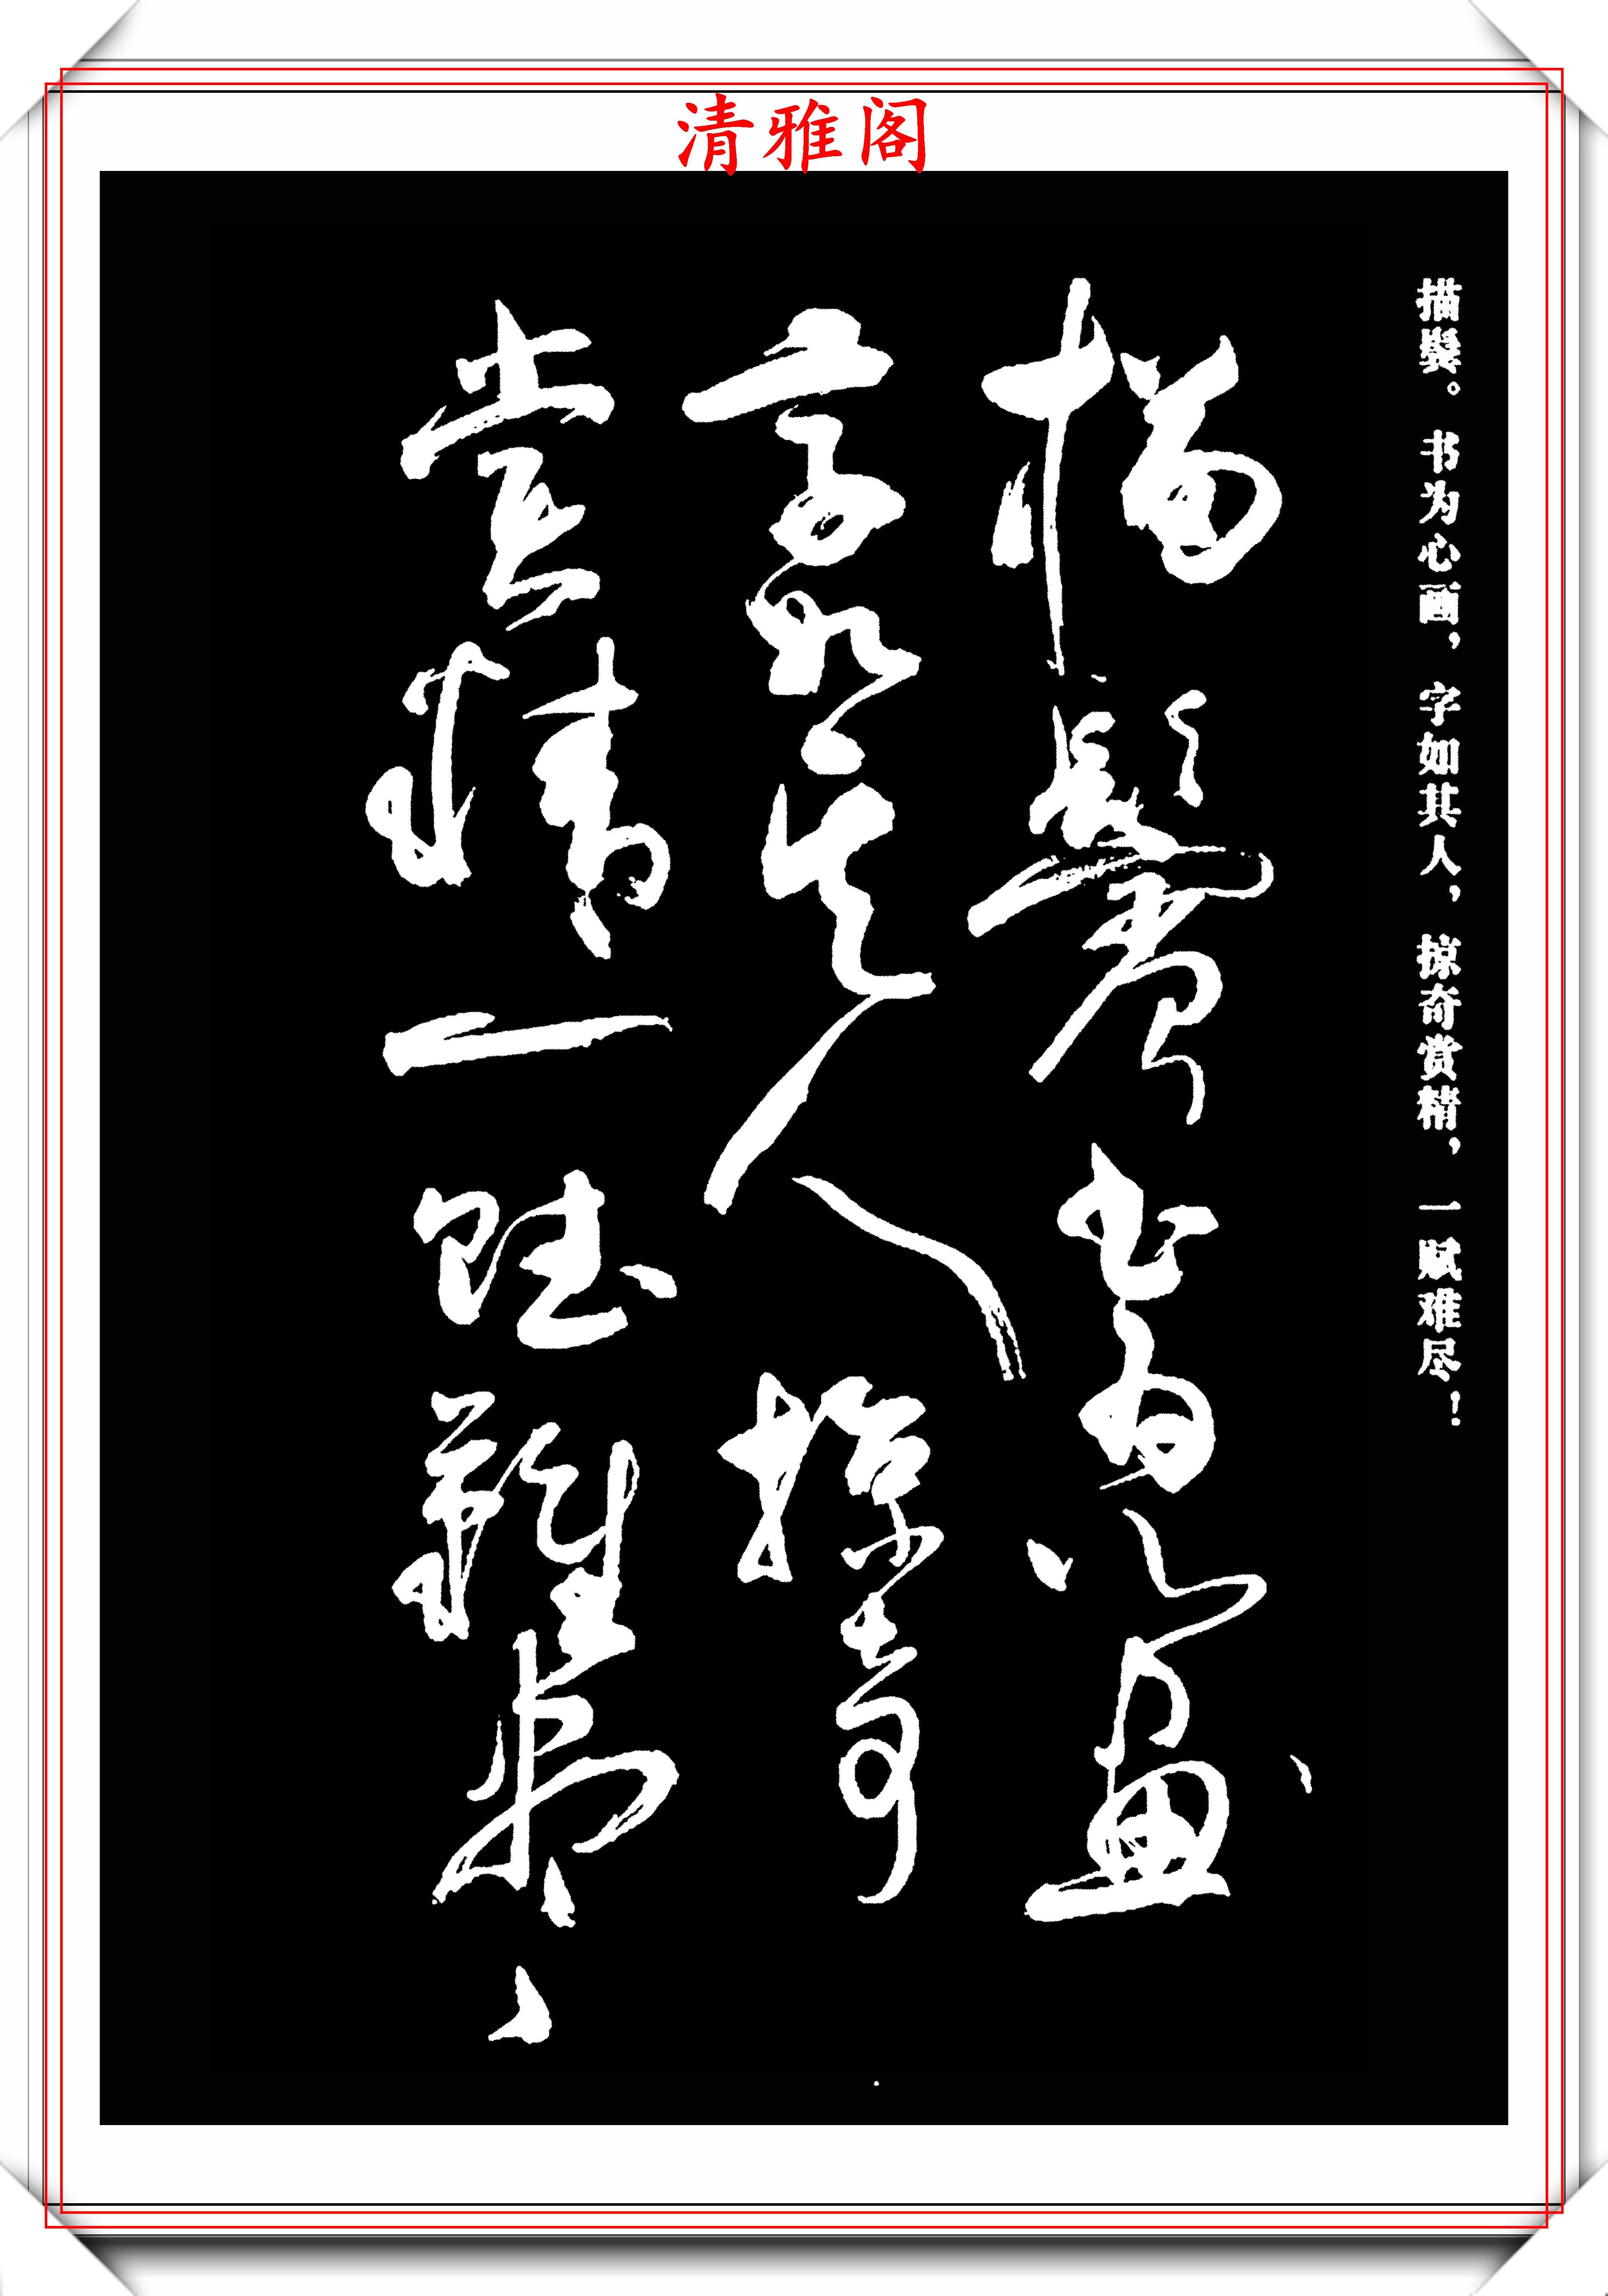 清雅阁
描鬓。书为心画，字如其人，掠奇赏精，一赋难尽！
描鬓书为心画
字如其人掠奇
赏精一赋难尽